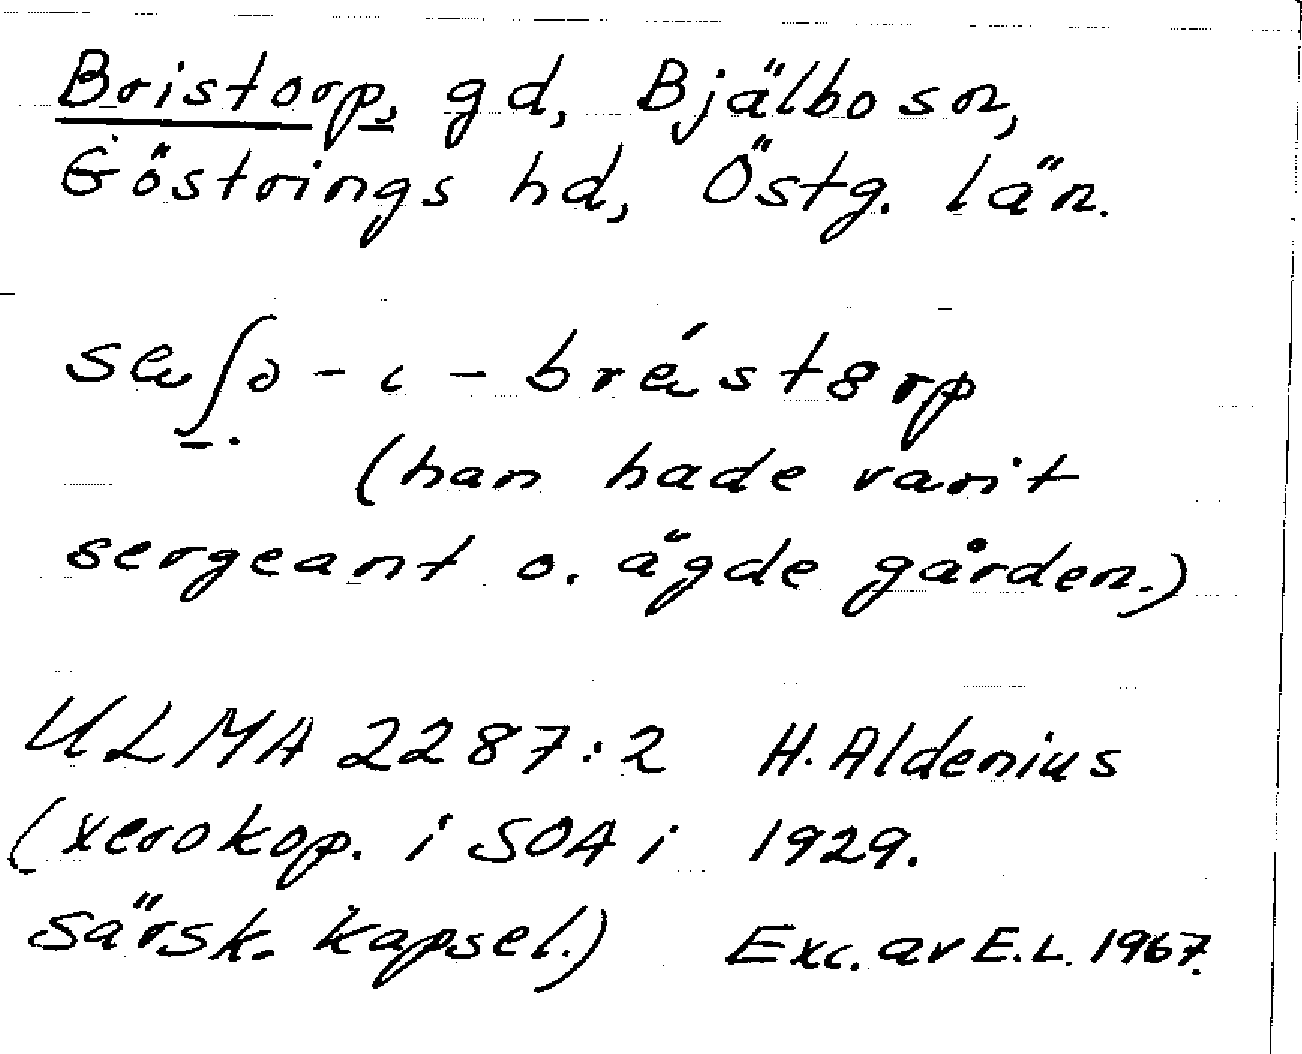 Bristorp, gd, Bjälbo sn,
Göstrings hd, Östg. län.
sɐʃə - ɩ - brɐ́st8rp
(han hade varit
sergeant o. ägde gården.)
ULMA 2287:2 H. Aldenius
(xerokop. i SOA i 1929.
särsk. kapsel.) Exc. av E.L. 1967.